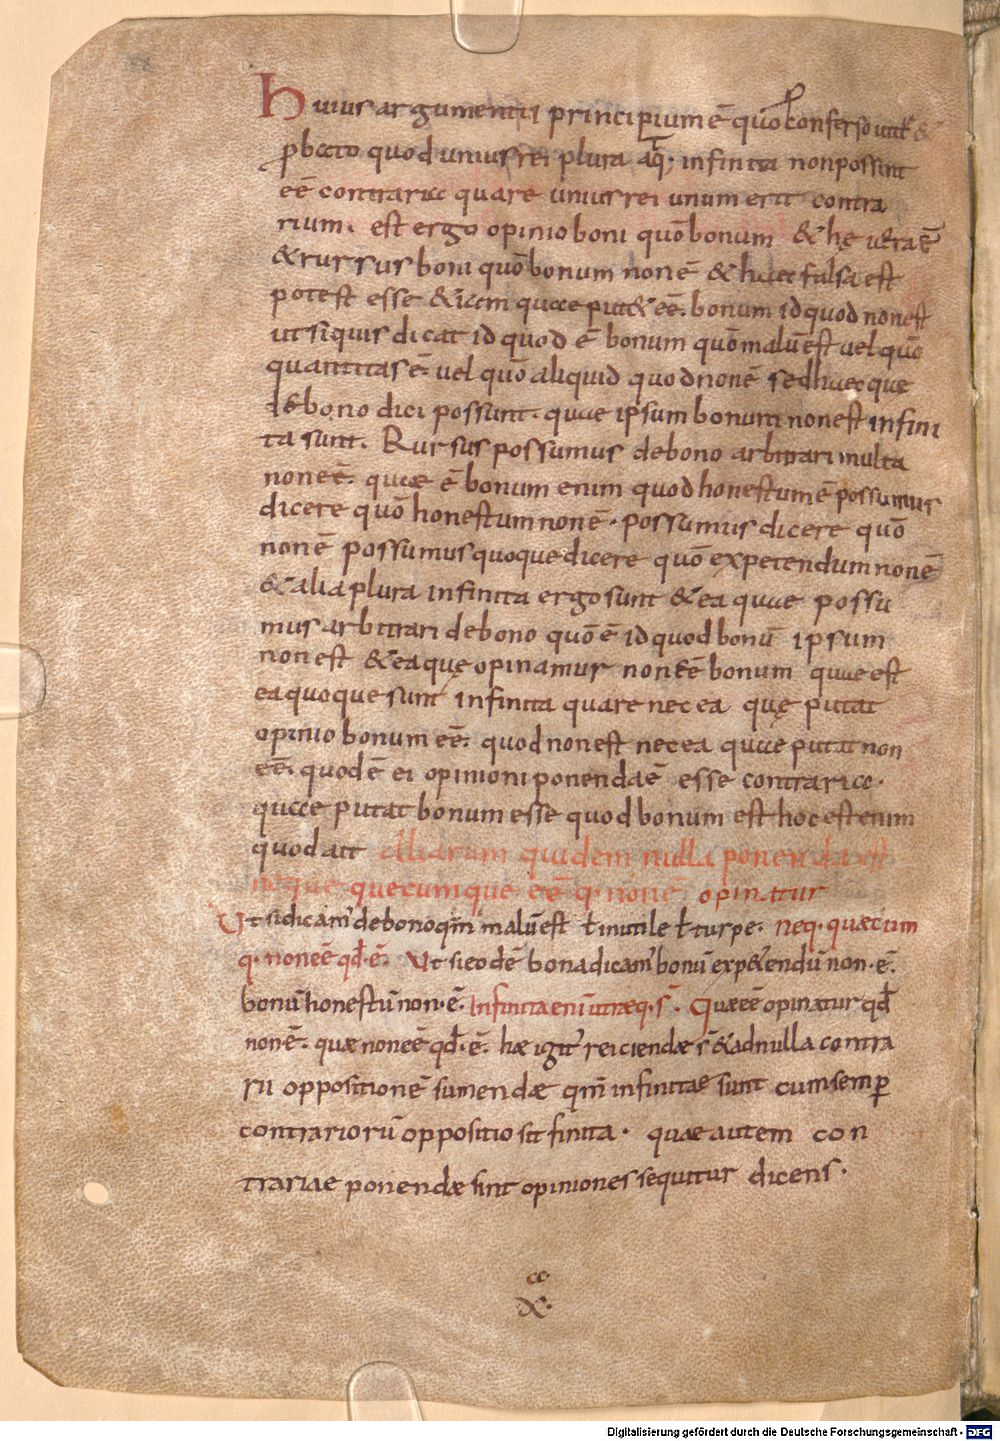 Huius argumenti principium ē quo confesso utiɫ &
p̱bato quod unius rei plura atq; infinita non possint
eē contraria quare unius rei unum erit contra
rium. est ergo opinio boni quō bonum & hę uera ē
& rursus boni quō bonum non ē & haec falsa est
potest esse & iam quae put& eē. bonum id quod non est
ut siquis dicat id quod ē bonum quō malū est uel quō
quantitas ē uel quō aliquid quod non ē sed haec quę
de bono dici possunt. quae ipsum bonum non est infini
ta sunt. Rursus possumus de bono arbitrari multa
non eē. quae ē bonum enim quod honestum ē possumus
dicere quō honestum non ē. possumus dicere quō
non ē possumus quoque dicere quō expetendum non ē
& alia plura infinita ergo sunt & ea quae possu
mus arbitrari de bono quō ē id quod bonū ipsum
non est & ea quę opinamur non eē bonum quae est
ea quoque sunt infinita quare nec ea quę putat
opinio bonum eē. quod non est nec ea quae putat non
eē. quod ē ei opinioni ponenda ē esse contraria.
quae putat bonum esse quod bonum est hoc est enim
quod ait Aliarum quidem nulla ponenda est
neque quecumque eē q. non ē opinatur
Ut si dicam̄ de bono qm̄ malū est ɫ inutile ɫ turpe. neq. quæcum
q. non eē qđ. ē. Ut si eodē bona dicam̄ bonū exp&endū non. ē.
bonū honestū non. ē. Infinita eni utræq. s̄. Quæ eē opinatur qđ
non. ē. quæ non eē qđ. ē. hæ igit̄ reiciendæ s̄ & ad nulla contra
rii oppositionē sumendæ qm̄ infinitae sunt cum semp̱
contrariorū oppositio sit finita. quae autem con
trariae ponendæ sint opiniones sequitur dicens.
X.
Digitalisierung gefördert durch die Deutsche Forschungsgemeinschaft - DFG